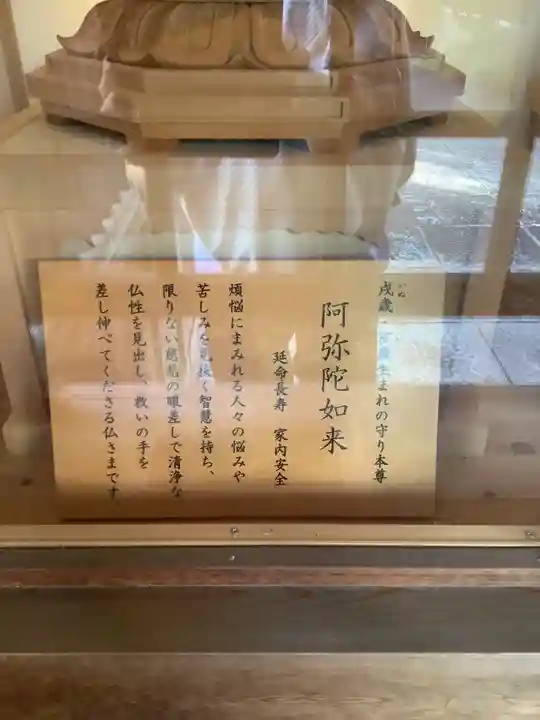 戌歳・亥歳生まれの守り本尊
いぬ
阿弥陀如来
延命長寿 家内安全
煩悩にまみれる人々の悩みや
苦しみを見抜く智慧を持ち、
限りない慈悲の眼差しで清浄な
仏性を見出し、救いの手を
差し伸べてくださる仏さまです。